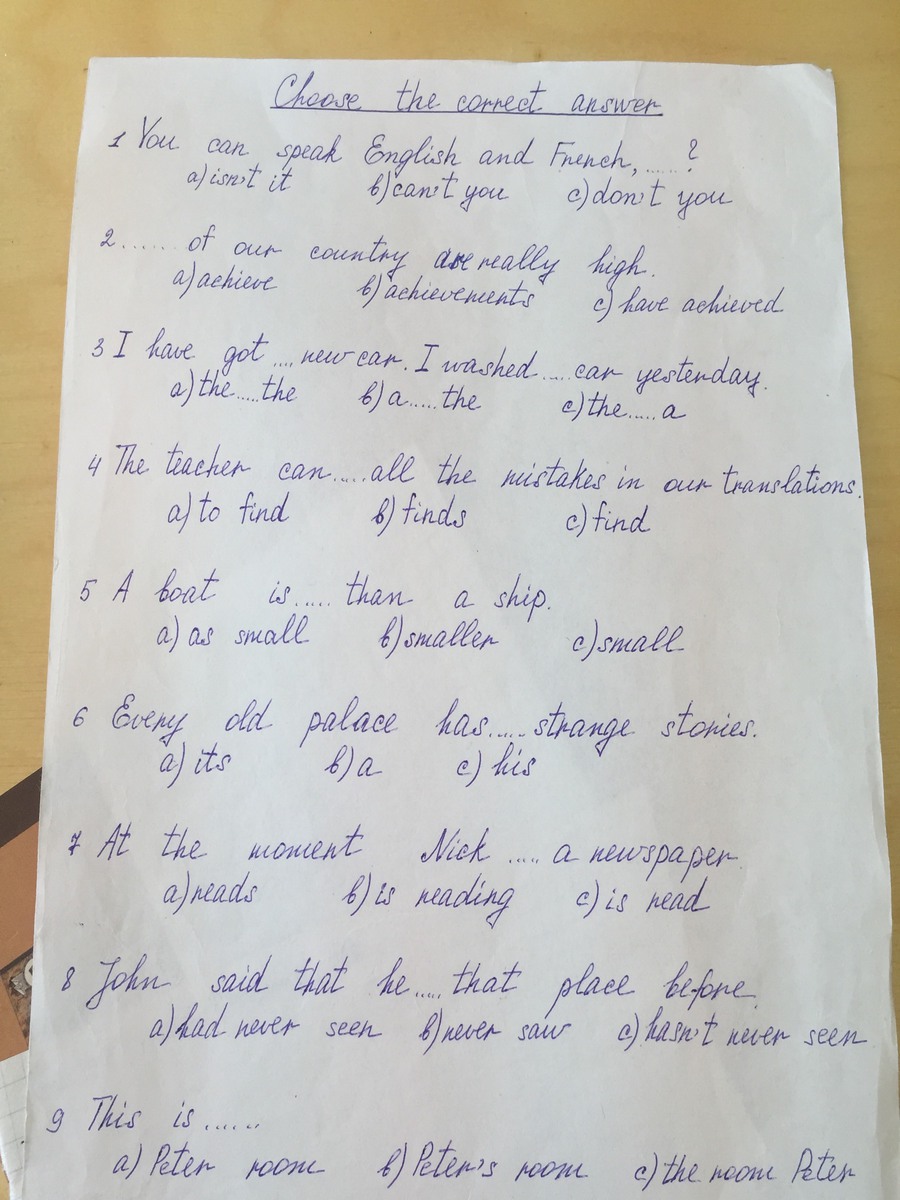 Choose the correct answer
1 You can speak English and French, ...... ?
a) isn't it b) can't you c) don't you
2 ...... of our country are really high.
a) achieve b) achievements c) have achieved
3 I have got .... new car. I washed .... car yesterday.
a) the.....the b) a.....the c) the.....a
4 The teacher can.....all the mistakes in our translations.
a) to find b) finds c) find
5 A boat is..... than a ship.
a) as small b) smaller c) small
6 Every old palace has.....strange stories.
a) its b) a c) his
7 At the moment Nick ..... a newspaper.
a) reads b) is reading c) is read
8 John said that he.....that place before.
a) had never seen b) never saw c) hasn't never seen
9 This is ......
a) Peter room b) Peter's room c) the room Peter